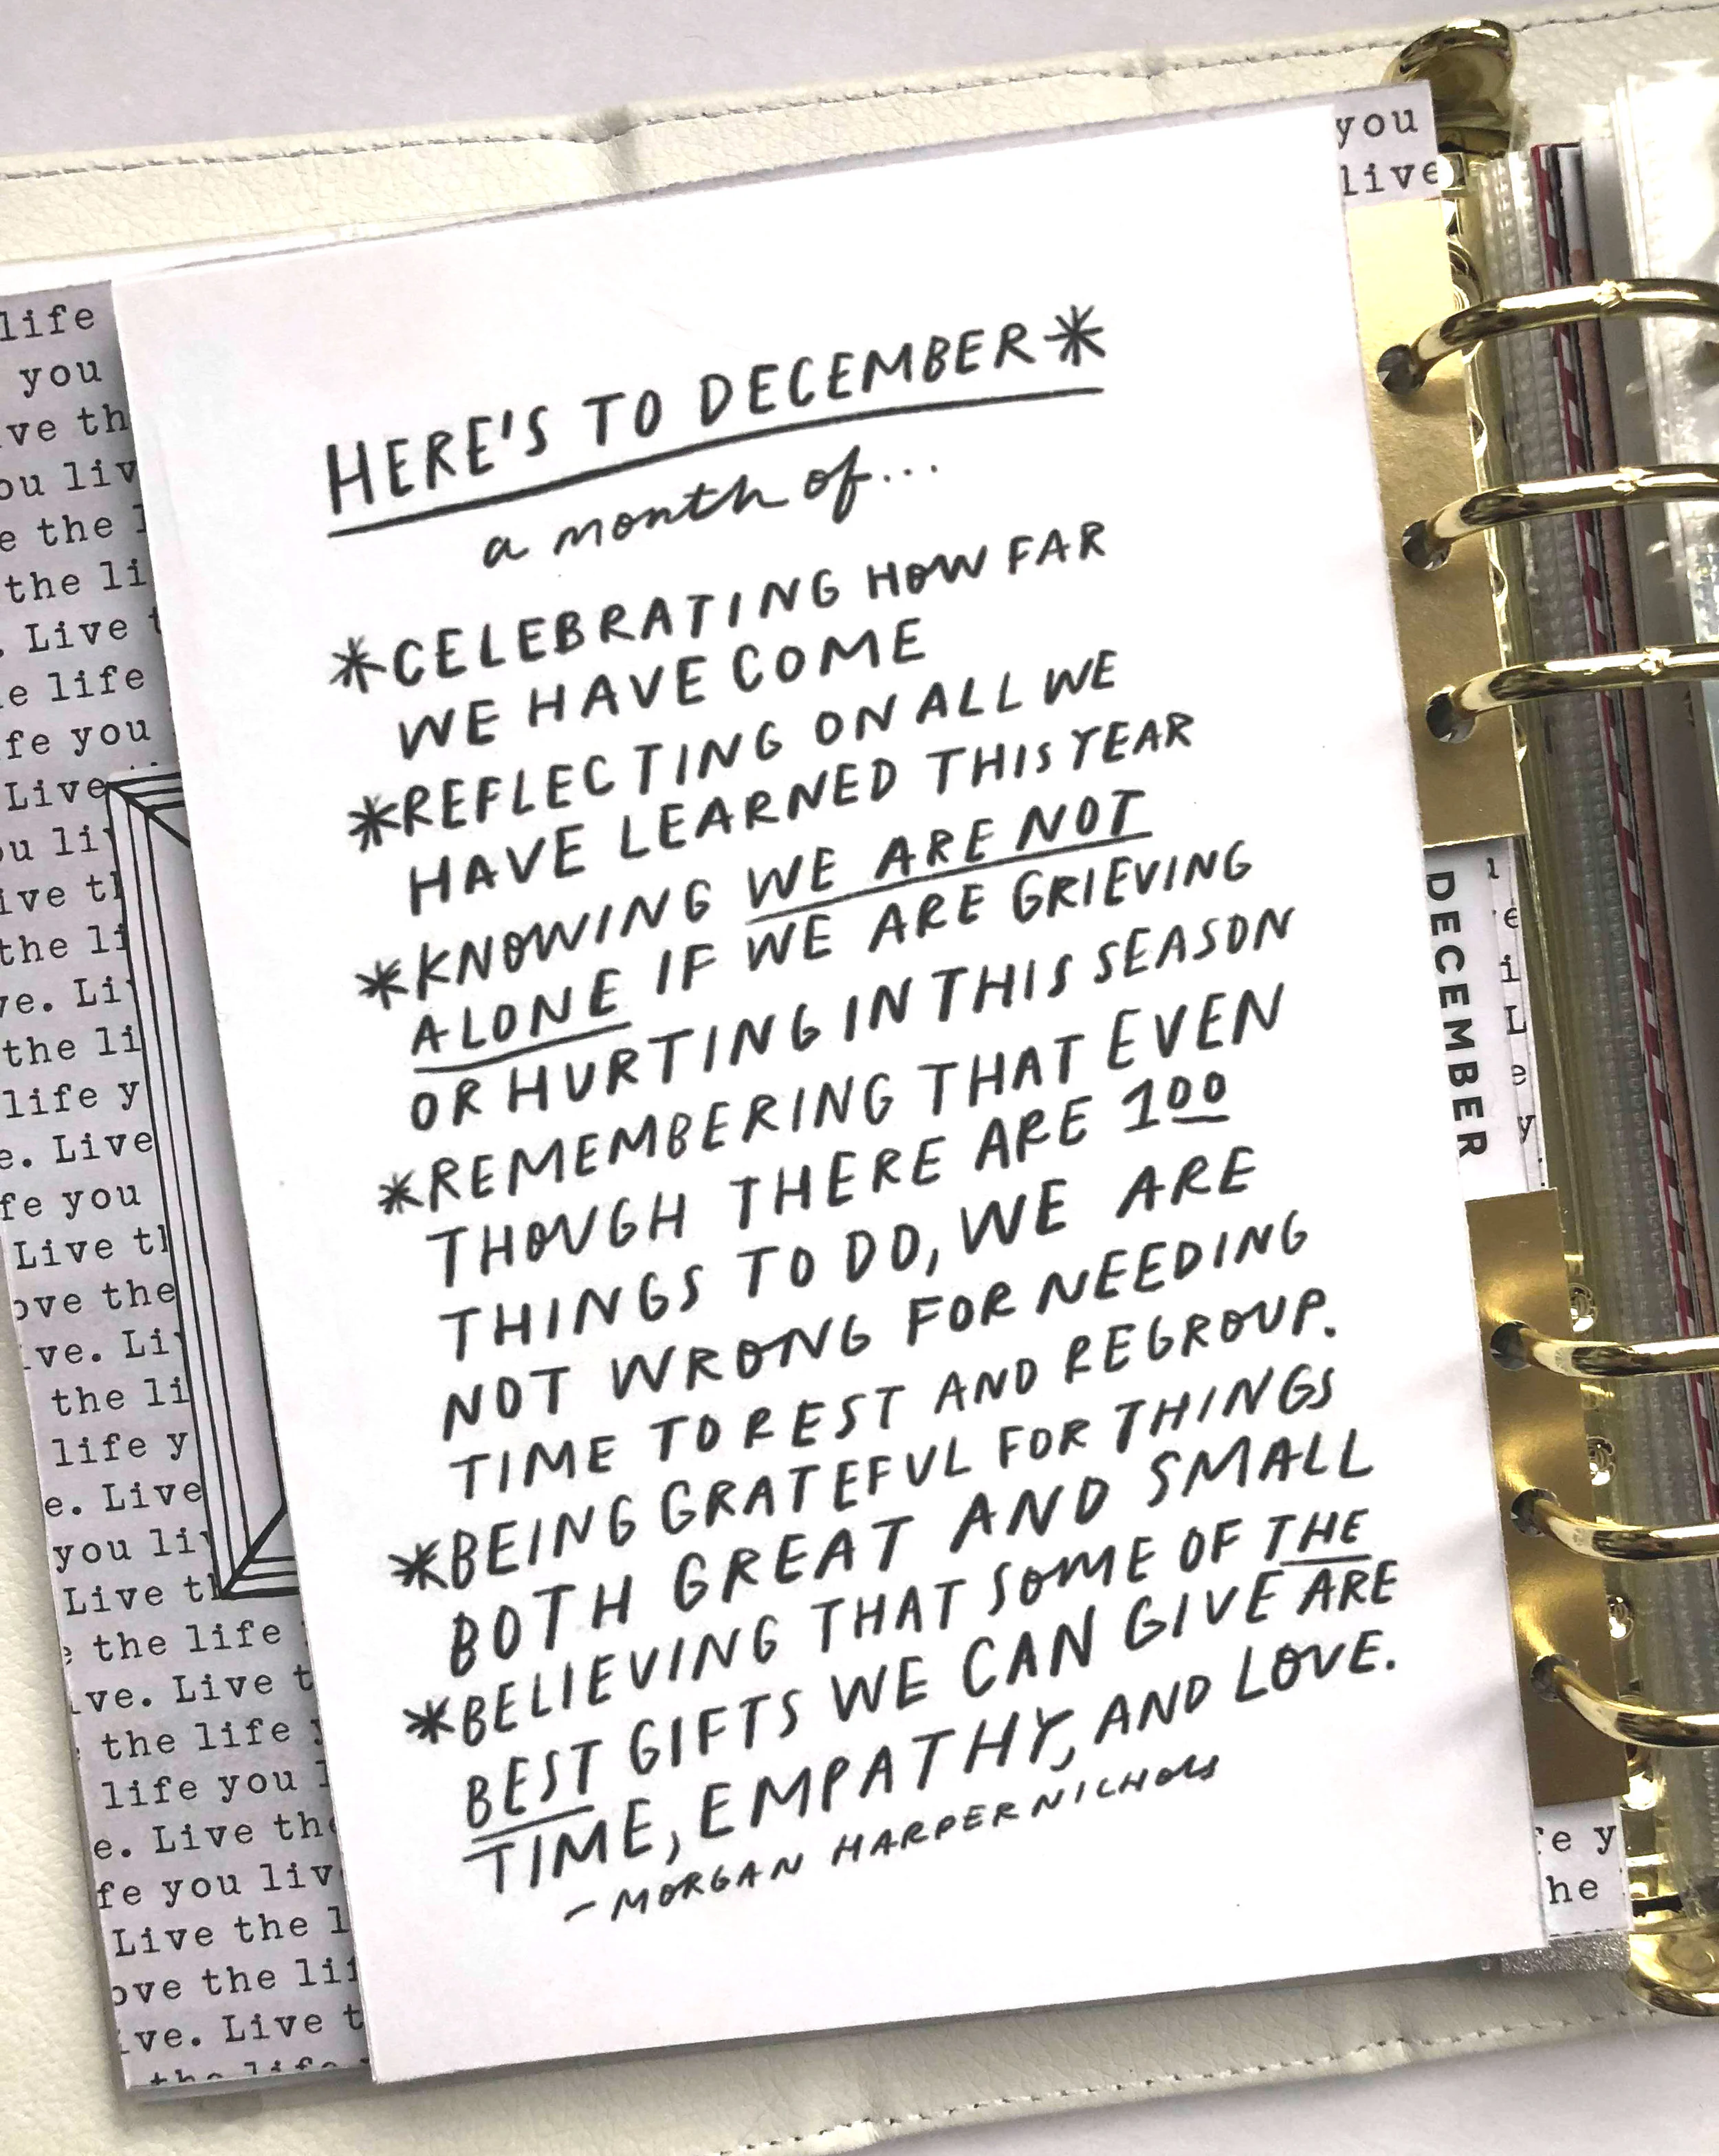 HERE'S TO DECEMBER*
a month of...
*CELEBRATING HOW FAR
WE HAVE COME
*REFLECTING ON ALL WE
HAVE LEARNED THIS YEAR
*KNOWING WE ARE NOT
ALONE IF WE ARE GRIEVING
OR HURTING IN THIS SEASON
*REMEMBERING THAT EVEN
THOUGH THERE ARE 100
THINGS TO DO, WE ARE
NOT WRONG FOR NEEDING
TIME TO REST AND REGROUP.
*BEING GRATEFUL FOR THINGS
BOTH GREAT AND SMALL
*BELIEVING THAT SOME OF THE
BEST GIFTS WE CAN GIVE ARE
TIME, EMPATHY, AND LOVE.
-MORGAN HARPER NICHOLS
DECEMBER
you
live
life
you
the
Live
life
you
Live
the
Live
the
life
Live
you
Live
the
the
life
Live
you
Live
the life
Live
the life
life you
Live
you
Live the
the
Live
the life